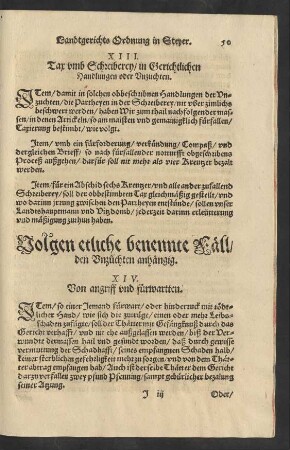 Landtgerichts Ordnung in Steyer. 50
XIII.
Tax vmb Schreiberey / in Gerichtlichen
Handlungen oder Vnzuchten.
ITem / damit in solchen obbeschribnen Handlungen der Vn-
zuchten / die Partheyen in der Schreiberey / nit vber zimlichs
beschwert werden / haben Wir zum thail nachfolgender mas-
sen / in denen Artickeln / so am maisten vnd gemainigklich fürfallen /
Taxierung bestimbt / wie volgt.
Item / vmb ein fürforderung / verkündung / Compaß / vnd
dergleichen Brieff / so nach fürfallender notturfft obgeschribens
Proceß außgehen / darfür soll nit mehr als vier Kreutzer bezalt
werden.
Item / für ein Abschid sechs Kreutzer / vnd alle ander zufallend
Schreiberey / soll der obbestimbten Tax gleichmässig gestelt / vnd
wo darinn jrrung zwischen den Partheyen entstünde / sollen vnser
Landtshauptmann vnd Vitzdomb / jederzeit darinn erleütterung
vnd mässigung zuthun haben.
Volgen etliche benennte Fäll /
den Vnzüchten anhängig.
XIV.
Von angriff vnd fürwartten.
ITem / so einer Jemand fürwart / oder hinderruck mit tödt-
licher Hand / wie sich die zutrüge / einen oder mehr Leibs-
schaden zufügte / soll der Thätter mit Gefängknuß durch das
Gericht verhafft / vnd eher nit außgelassen werden / biß der Ver-
wundte dermassen hail vnd gesundt worden / daß durch gewisse
vermuettung der Schadhafft / seines empfangnen Schaden halb /
keiner sterblichen geferligkeit mehr zu sorgen / vnd von dem Thätter
abtrag empfangen hab / Auch ist derselbe Thätter dem Gericht
darzu verfallen zwey pfundt Pfenning / sampt gebürlicher bezalung
seiner Atzung.
I iij Oder /